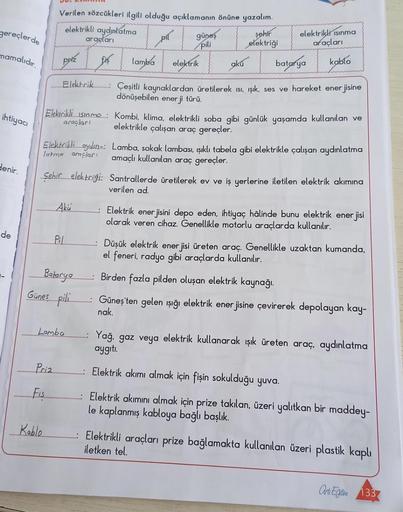 Verilen sözcükleri ilgili olduğu açıklamanın önüne yazalım.
gereçlerde
mamalıdır.
ihtiyacı
denir.
de
elektrikli aydınlatma araçları
pil
güneş pili
şehir elektriği
elektrikli ısınma araçları
priz
fiş
lamba
elektrik
akü
batarya
kablo
Elektrik : Çeşitli kaynaklardan üretilerek ısı, ışık, ses ve hareket enerjisine
dönüşebilen enerji türü.
Elektrikli ısınma : Kombi, klima, elektrikli soba gibi günlük yaşamda kullanılan ve
araçları elektrikle çalışan araç gereçler.
Elektrikli aydın- : Lamba, sokak lambası, ışıklı tabela gibi elektrikle çalışan aydınlatma
latma araçları amaçlı kullanılan araç gereçler.
Şehir elektriği : Santrallerde üretilerek ev ve iş yerlerine iletilen elektrik akımına
verilen ad.
Akü : Elektrik enerjisini depo eden, ihtiyaç hâlinde bunu elektrik enerjisi
olarak veren cihaz. Genellikle motorlu araçlarda kullanılır.
Pil : Düşük elektrik enerjisi üreten araç. Genellikle uzaktan kumanda,
el feneri, radyo gibi araçlarda kullanılır.
Batarya : Birden fazla pilden oluşan elektrik kaynağı.
Güneş pili : Güneş'ten gelen ışığı elektrik enerjisine çevirerek depolayan kay-
nak.
Lamba : Yağ, gaz veya elektrik kullanarak ışık üreten araç, aydınlatma
aygıtı.
Priz : Elektrik akımı almak için fişin sokulduğu yuva.
Fiş : Elektrik akımını almak için prize takılan, üzeri yalıtkan bir maddey-
le kaplanmış kabloya bağlı başlık.
Kablo : Elektrikli araçları prize bağlamakta kullanılan üzeri plastik kaplı
iletken tel.
137